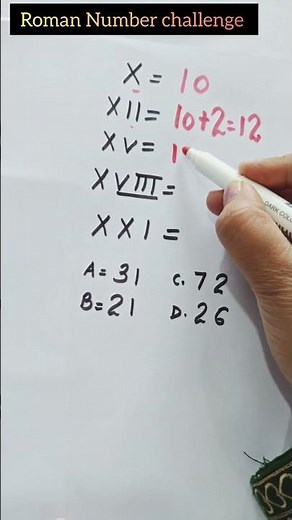 Roman Number challenge
X = 10
XII = 10+2=12
XV = 1
XVIII =
XXI =
A = 31 C. 72
B = 21 D. 26